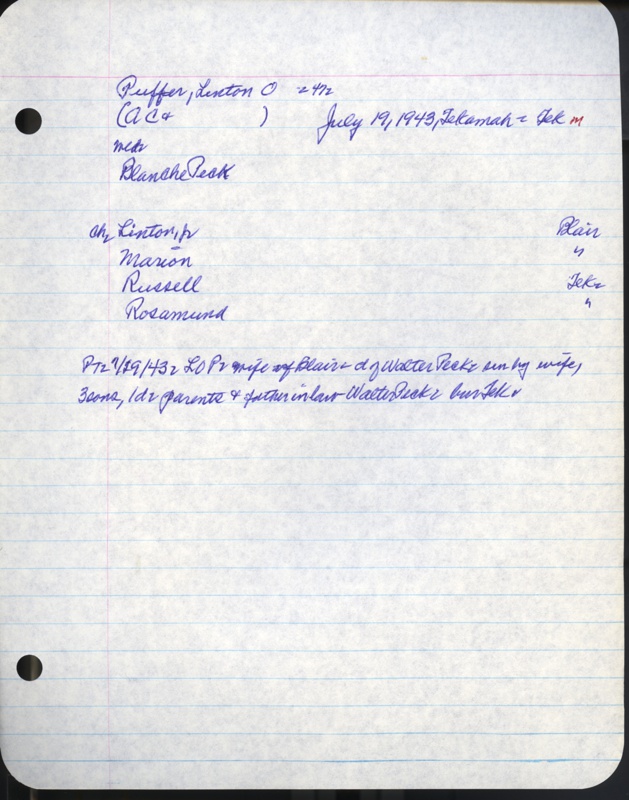 Puffer, Linton O = 42
(A C & ) July 19, 1943, Tekamah = Tek m
md
Blanche Peck
ch, Linton, jr Blair
Marion "
Russell Tek
Rosamund "
PT 7/29/43 L O P wife of Blair d of Walter Peck sur by wife,
3 sons, 1 d parents & father in law Walter Peck bur Tek